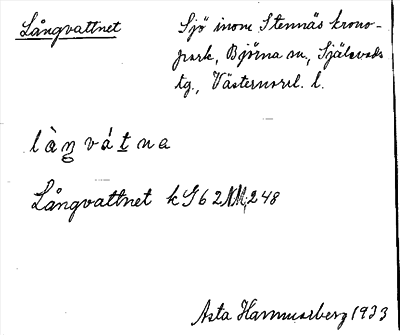 Långvattnet
Sjö inom Stennäs krono-
park, Björna sn., Själevads
tg., Västernorrl. l.
làŋvátna
Långvattnet kG62NM,248
Asta Hammarberg 1933